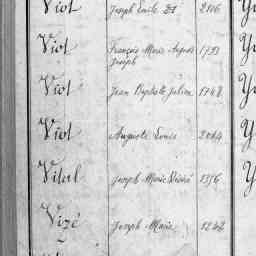 Viot Joseph Emile
Viot François Marie August 1793
Joseph
Viot Jean Baptiste Julien 1748
Viot Auguste Louis 2084
Vital Joseph Marie Désiré 1356
Vizé Joseph Marie 1242